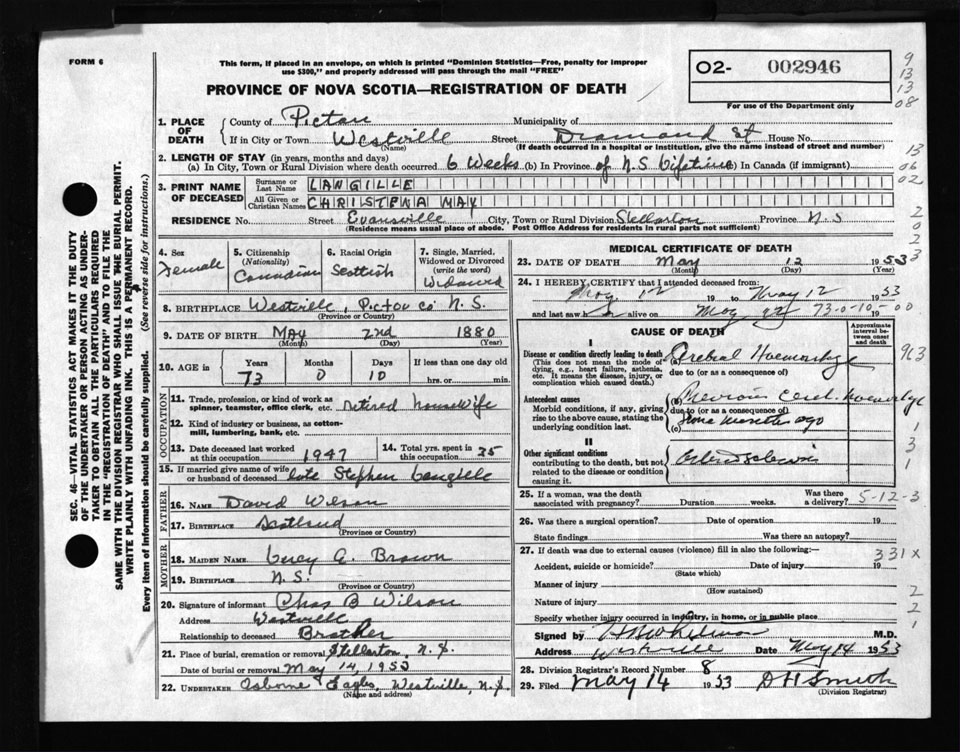 FORM 6
This form, if placed in an envelope, on which is printed "Dominion Statistics—Free, penalty for improper
use $300," and properly addressed will pass through the mail "FREE"
PROVINCE OF NOVA SCOTIA—REGISTRATION OF DEATH
02- 002946
For use of the Department only
9
13
13
08
13
06
02
2
0
2
23
1. PLACE OF DEATH
County of Pictou Municipality of
If in City or Town Westville Street Diamond St House No.
(Name) (If death occurred in a hospital or institution, give the name instead of street and number)
2. LENGTH OF STAY (in years, months and days)
(a) In City, Town or Rural Division where death occurred 6 Weeks (b) In Province of N.S Lifetime (c) In Canada (if immigrant)
3. PRINT NAME OF DECEASED
Surname or Last Name LANGILLE
All Given or Christian Names CHRISTENA MAY
RESIDENCE No. Street Evansville City, Town or Rural Division Stellarton Province N.S
(Residence means usual place of abode. Post Office Address for residents in rural parts not sufficient)
4. Sex Female
5. Citizenship (Nationality) Canadian
6. Racial Origin Scottish
7. Single, Married, Widowed or Divorced (write the word) Widowed
8. BIRTHPLACE Westville, Pictou co N.S.
(Province or Country)
9. DATE OF BIRTH May 2nd 1880
(Month) (Day) (Year)
10. AGE in Years Months Days If less than one day old
73 0 10 hrs. or min.
OCCUPATION
11. Trade, profession, or kind of work as spinner, teamster, office clerk, etc. retired housewife
12. Kind of industry or business, as cotton-mill, lumbering, bank, etc.
13. Date deceased last worked at this occupation 1947
14. Total yrs. spent in this occupation 35
15. If married give name of wife or husband of deceased late Stephen Langille
FATHER
16. NAME David Wilson
17. BIRTHPLACE Scotland
(Province or Country)
MOTHER
18. MAIDEN NAME Lucy A. Brown
19. BIRTHPLACE N.S.
(Province or Country)
20. Signature of informant Chas B Wilson
Address Westville
Relationship to deceased Brother
21. Place of burial, cremation or removal Stellarton, N.S.
Date of burial or removal May 14, 1953
22. UNDERTAKER Osborne Eagles, Westville, N.S.
(Name and address)
MEDICAL CERTIFICATE OF DEATH
23. DATE OF DEATH May 12 1953
(Month) (Day) (Year)
24. I HEREBY CERTIFY that I attended deceased from:
May 12 19 to May 12 1953
and last saw h alive on May 12 73-0-10-00
CAUSE OF DEATH
Approximate interval between onset and death
I
Disease or condition directly leading to death
(This does not mean the mode of dying, e.g., heart failure, asthenia, etc. It means the disease, injury, or complication which caused death.)
(a) Cerebral Haemorrhage 963
due to (or as a consequence of)
Antecedent causes
Morbid conditions, if any, giving rise to the above cause, stating the underlying condition last.
(b) Previous Cereb. haemorrhage
due to (or as a consequence of)
(c) some months ago
1
3
1
II
Other significant conditions
contributing to the death, but not related to the disease or condition causing it.
25. If a woman, was the death associated with pregnancy? Duration weeks. Was there a delivery? 5-12-3
26. Was there a surgical operation? Date of operation 19
State findings Was there an autopsy?
27. If death was due to external causes (violence) fill in also the following: 331X
Accident, suicide or homicide? Date of injury 19
(State which)
Manner of injury
(How sustained)
Nature of injury
Specify whether injury occurred in industry, in home, or in public place
2
2
1
Signed by M.D.
Address Westville Date May 14 1953
28. Division Registrar's Record Number 8
29. Filed May 14 1953 D H Smith
(Division Registrar)
SEC. 46—VITAL STATISTICS ACT MAKES IT THE DUTY
OF THE UNDERTAKER OR PERSON ACTING AS UNDER-
TAKER TO OBTAIN ALL THE PARTICULARS REQUIRED
IN THE "REGISTRATION OF DEATH" AND TO FILE THE
SAME WITH THE DIVISION REGISTRAR WHO SHALL ISSUE THE BURIAL PERMIT.
WRITE PLAINLY WITH UNFADING INK. THIS IS A PERMANENT RECORD.
Every item of Information should be carefully supplied. (See reverse side for instructions.)